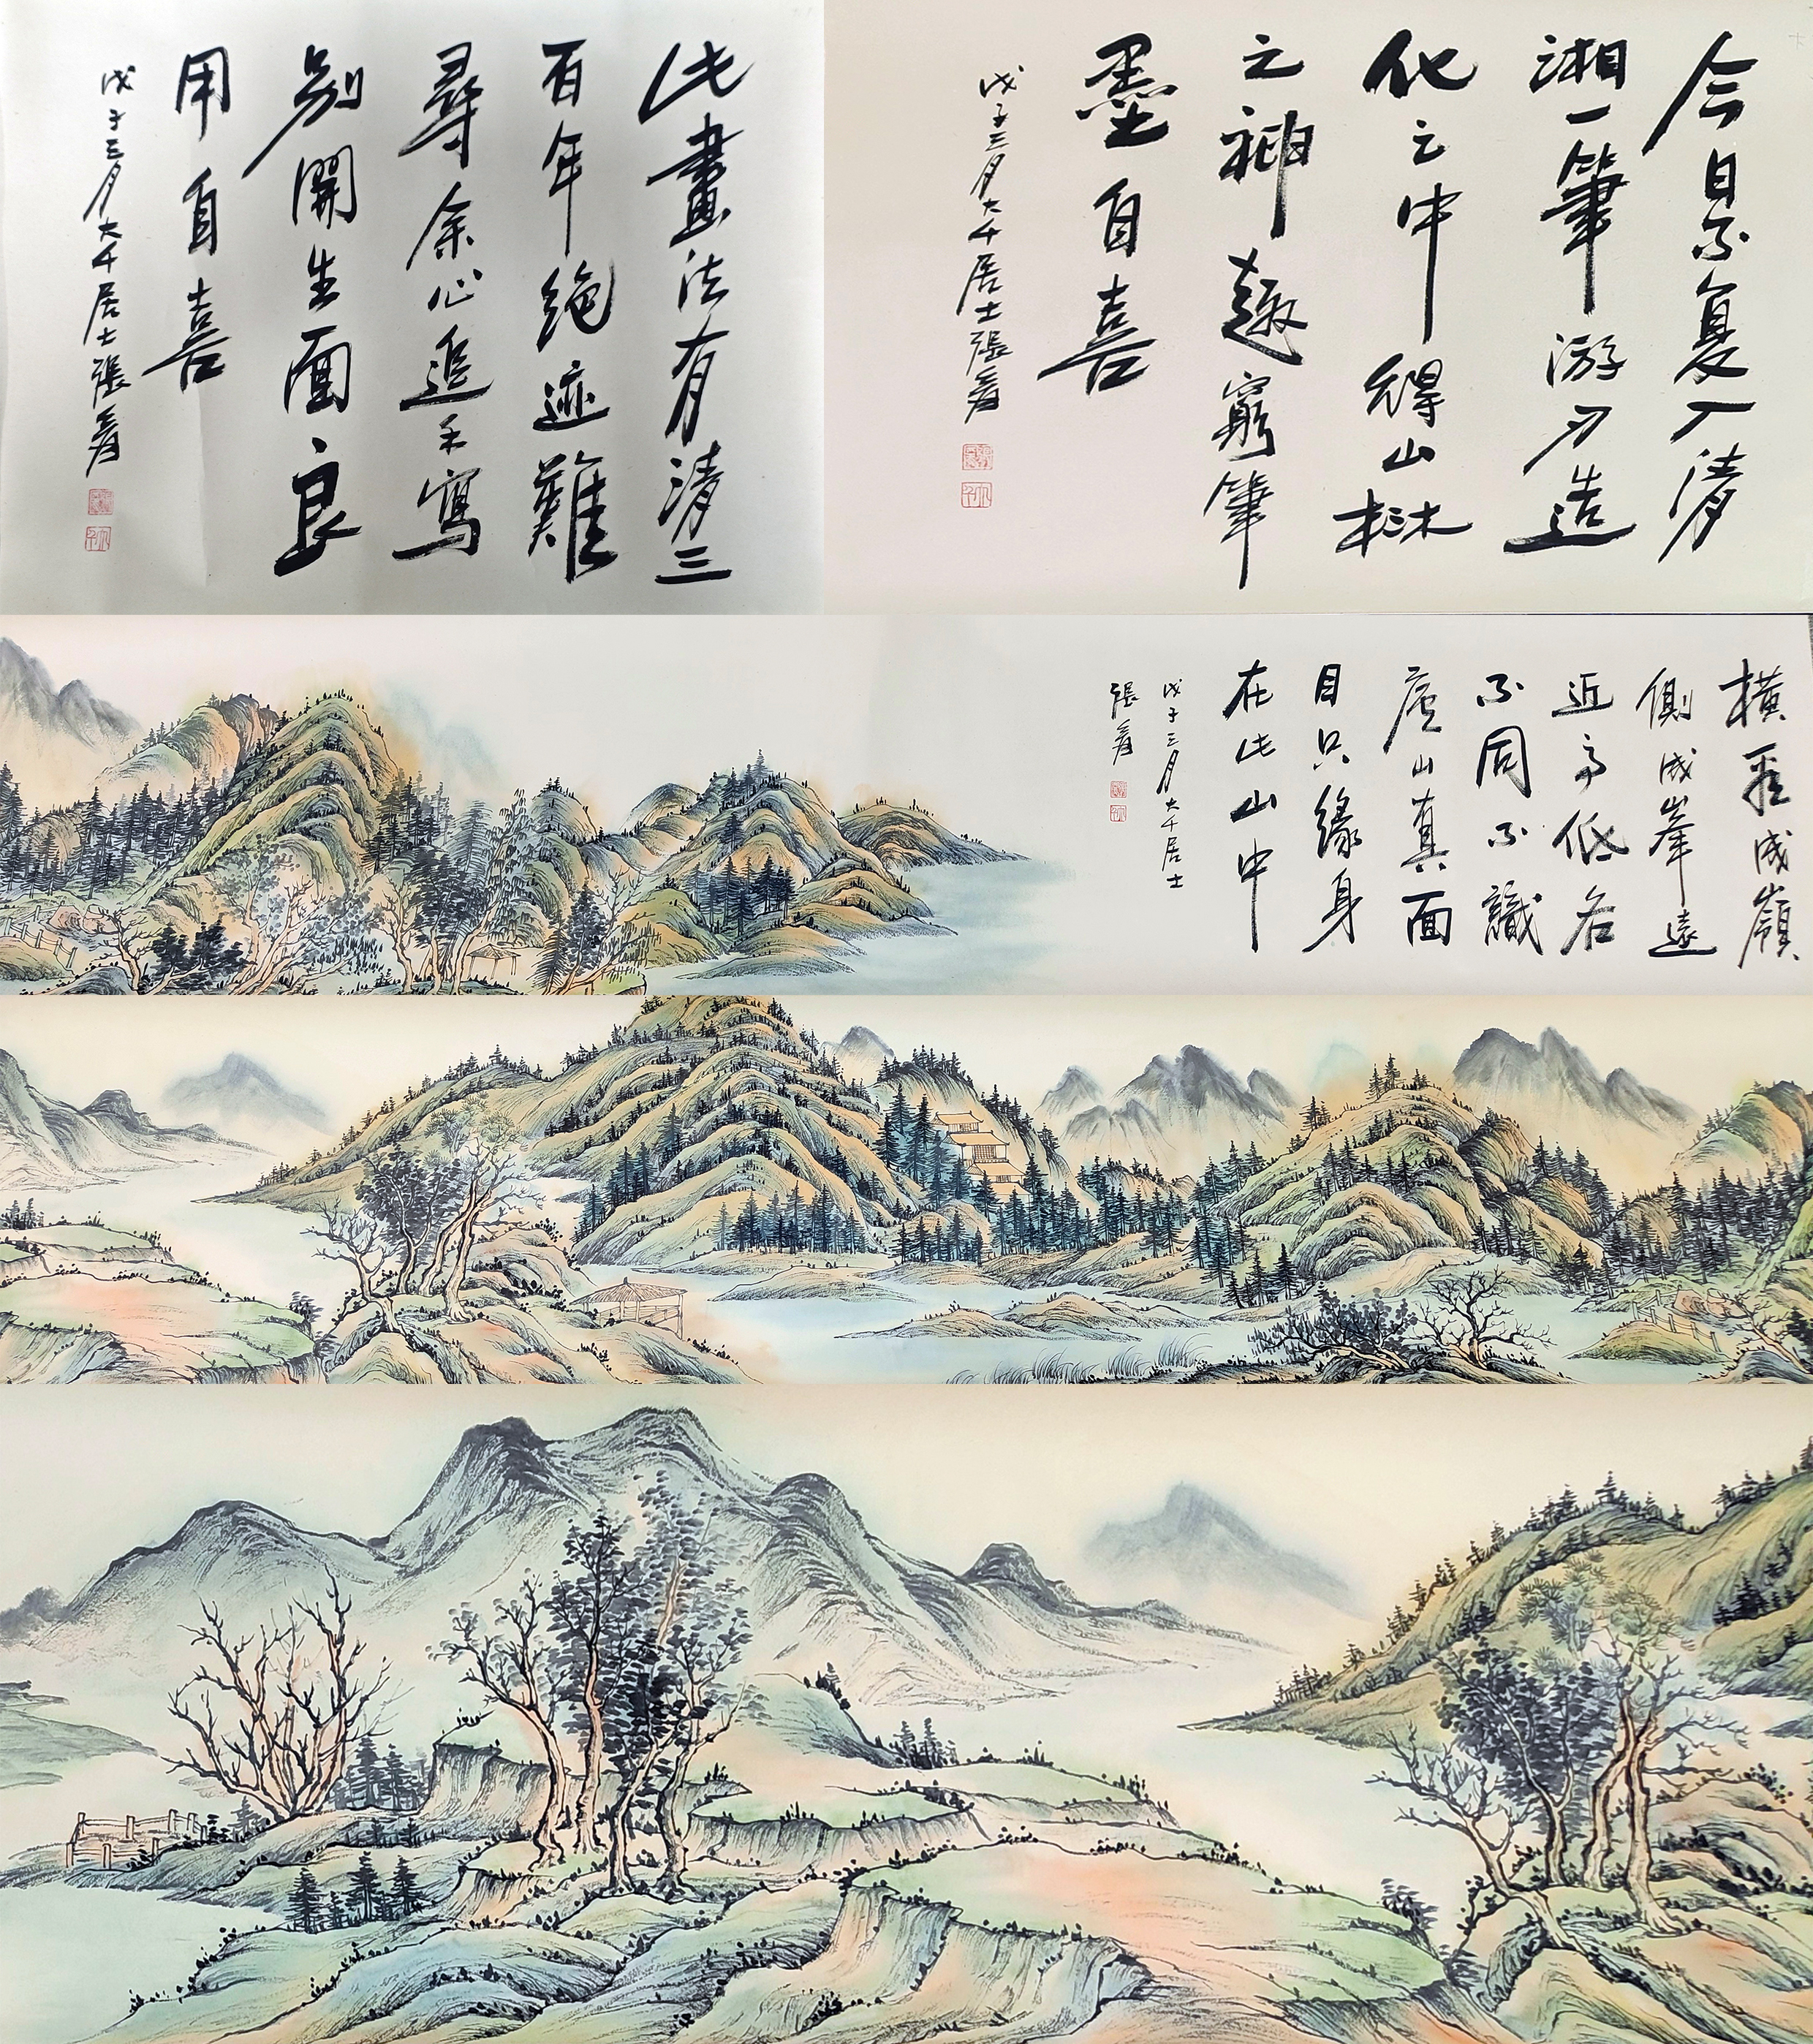 今日不复入清
湘一筆游刃造
化之中得山林
之神趣窮筆
墨自喜
戊子三月大千居士張爰
此畫法有清三
百年絶迹難
尋余心追手寫
別開生面良
用自喜
戊子三月大千居士張爰
橫看成嶺
側成峯遠
近高低各
不同不識
廬山真面
目只緣身
在此山中
戊子三月大千居士
張爰